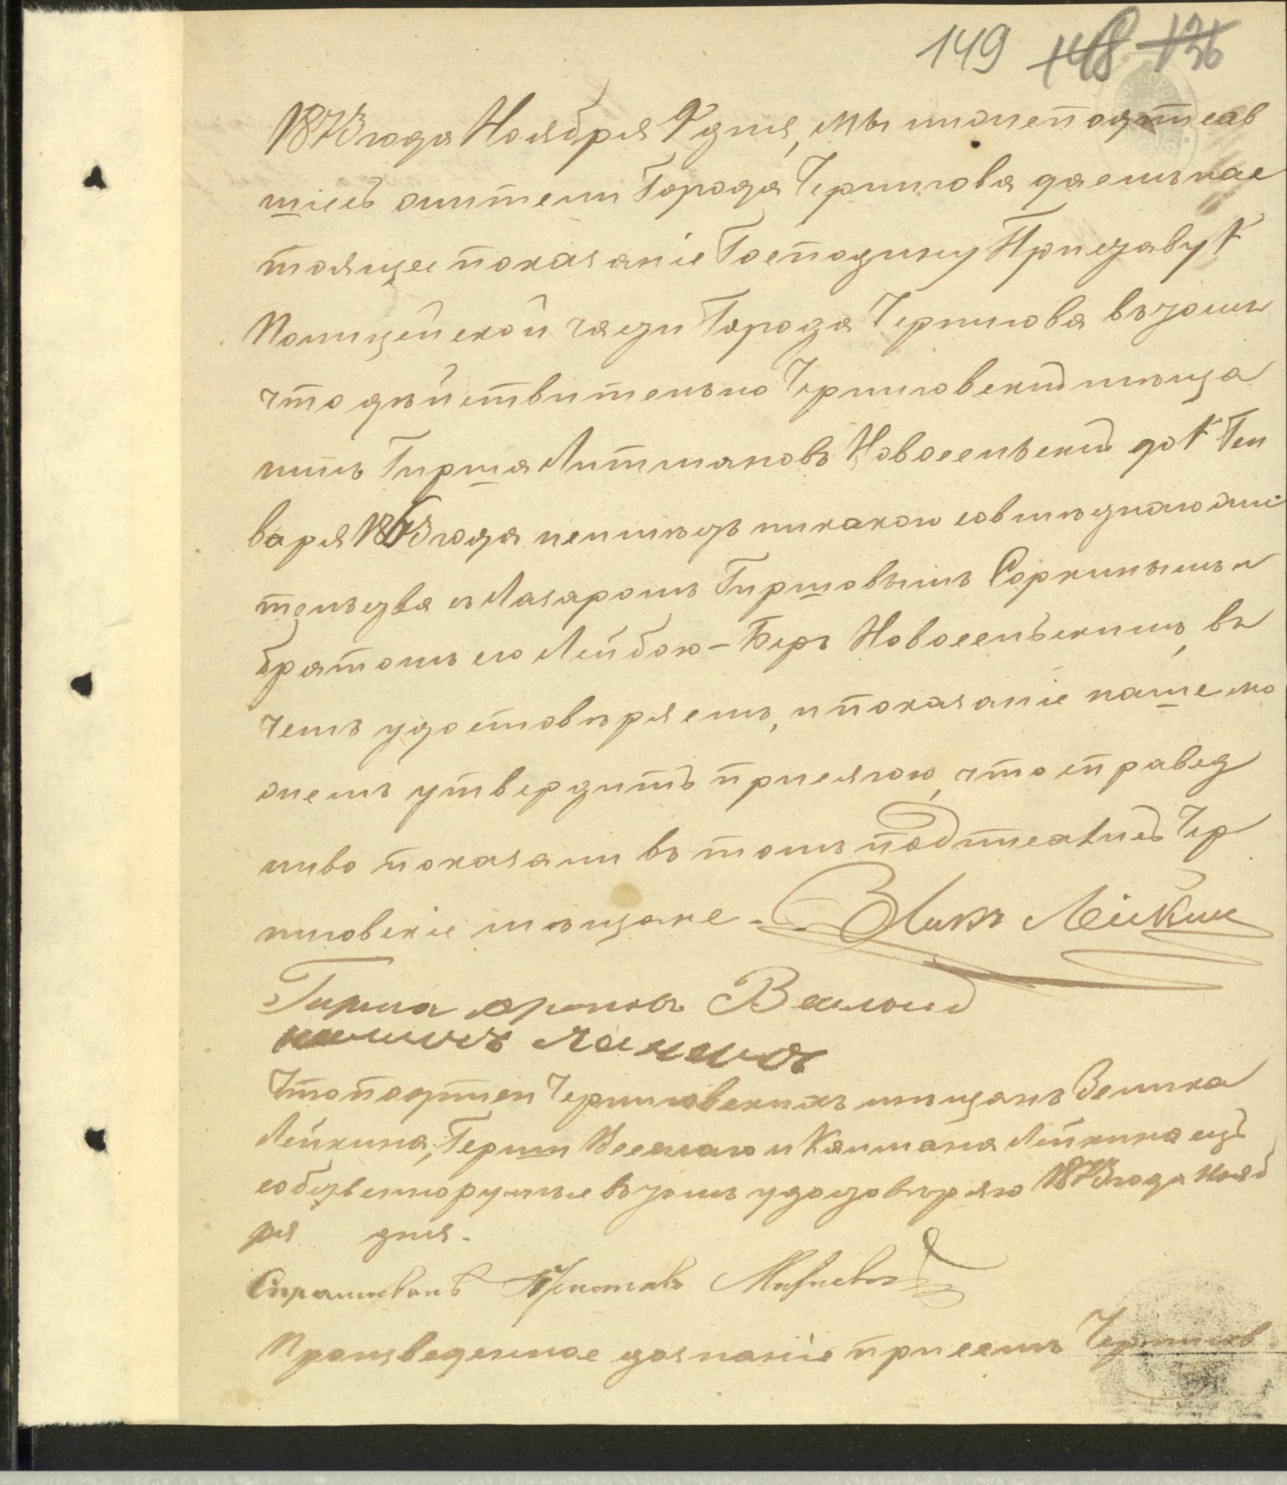 149 148 136
1873 года Ноября 9 дня, мы нижеподписав
шіесь жители Города Чернигова даемъ нас
тоящее показаніе Господину Приставу 1
Полицейской части Города Чернигова въ томъ
что действительно Черниговскій мѣща
нинъ Гирша Литмановъ Новосельскій до 1 Ген
варя 1863 года неимѣлъ никакого совмѣднаго жи
тельства съ Лазаромъ Гиршовымъ Соркинымъ и
братомъ его Лейбою-Беръ Новосельскимъ, въ
чемъ удостовѣряемъ, и показаніе наше мо
жемъ утвердить присягою, что справед
ливо показали въ томъ подписались Чер
ниговскіе мѣщане Зликъ Лейкин
Гирша
Что подписи Черниговскихъ мѣщанъ Зелика
Лейкина, Герши и Калмана Лейкина есть
собственноручные въ томъ удостовѣряю 1873 года Нояб
ря дня.
Спрашивалъ Приставъ
Произведенное дознаніе при семъ Чернигов